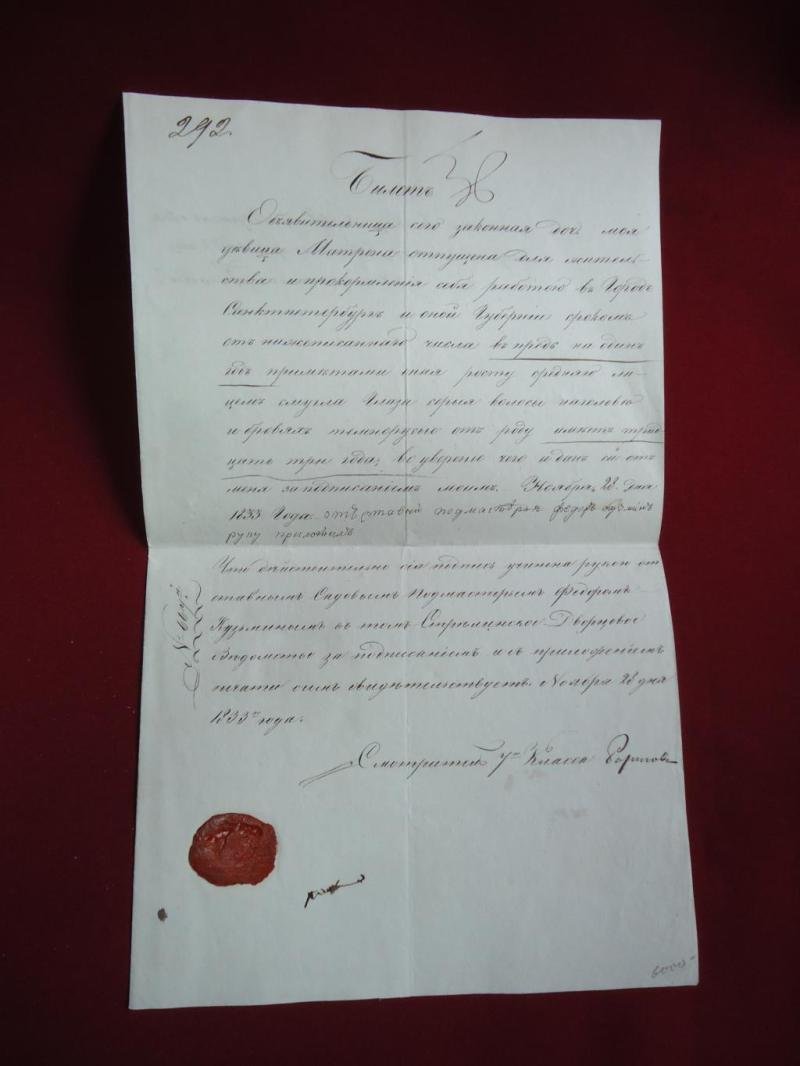 292.
Билетъ
Объявительница сего законная дочь моя
девица Матрона отпущена для житель
ства и прокормленія себя работою въ Городѣ
Санктпетербургѣ и оной Губерніи срокомъ
отъ нижеписаннаго числа впредь на одинъ
годъ примѣтами оная росту средняго ли
цемъ смугла Глаза серыя волосы на голове
и бровяхъ темнорусые отъ роду имѣетъ трид
цать три года; во уверение чего и данъ ей отъ
меня за подписаніемъ моимъ. Ноября 28 дня
1833 Года. отъставный подмастерья федоръ кузминъ
руку приложилъ
Что дѣйствительно сія подпись учинена рукою от
ставнымъ Садовымъ Подмастерьемъ Федоромъ
Кузьминымъ въ томъ Стрѣлинское Дворцовое
Вѣдомство за подписаніемъ и съ приложеніемъ
печати симъ свидѣтельствуетъ. Ноября 28 дня
1833го года.
Смотритель 7го Класса
6000-